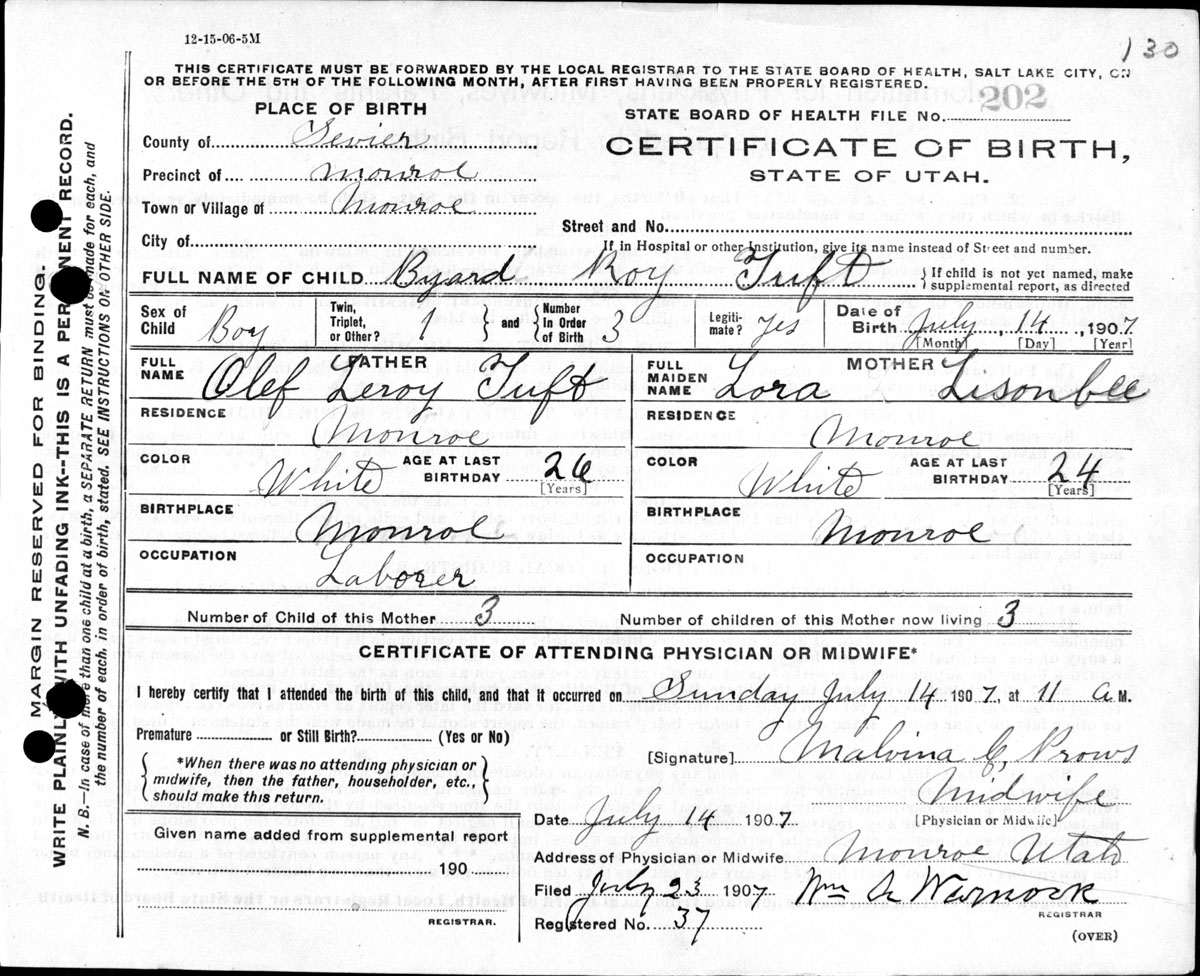 12-15-06-5M
130
THIS CERTIFICATE MUST BE FORWARDED BY THE LOCAL REGISTRAR TO THE STATE BOARD OF HEALTH, SALT LAKE CITY, ON
OR BEFORE THE 5TH OF THE FOLLOWING MONTH, AFTER FIRST HAVING BEEN PROPERLY REGISTERED.
PLACE OF BIRTH
STATE BOARD OF HEALTH FILE No. 202
County of Sevier
CERTIFICATE OF BIRTH,
Precinct of Monroe
STATE OF UTAH.
Town or Village of Monroe
Street and No.
City of
If in Hospital or other Institution, give its name instead of Street and number.
FULL NAME OF CHILD Byard Roy Tuft
If child is not yet named, make
supplemental report, as directed
Sex of Child Boy
Twin, Triplet, or Other? 1
and Number In Order of Birth 3
Legiti-mate? yes
Date of Birth July 14, 1907
[Month] [Day] [Year]
FATHER
FULL NAME Olef Leroy Tuft
MOTHER
FULL MAIDEN NAME Lora Lisonbee
RESIDENCE Monroe
RESIDENCE Monroe
COLOR White AGE AT LAST BIRTHDAY 26 [Years]
COLOR White AGE AT LAST BIRTHDAY 24 [Years]
BIRTHPLACE Monroe
BIRTHPLACE Monroe
OCCUPATION Laborer
OCCUPATION
Number of Child of this Mother 3
Number of children of this Mother now living 3
CERTIFICATE OF ATTENDING PHYSICIAN OR MIDWIFE*
I hereby certify that I attended the birth of this child, and that it occurred on Sunday July 14 1907 at 11 a M.
Premature or Still Birth? (Yes or No)
*When there was no attending physician or
midwife, then the father, householder, etc.,
should make this return.
[Signature] Malvina C, Prows
Midwife
[Physician or Midwife]
Date July 14 1907
Given name added from supplemental report
190
REGISTRAR.
Address of Physician or Midwife Monroe Utah
Filed July 23 1907 Wm A Warnock
REGISTRAR
Registered No. 37
(OVER)
MARGIN RESERVED FOR BINDING
WRITE PLAINLY WITH UNFADING INK--THIS IS A PERMANENT RECORD.
N. B.--In case of more than one child at a birth, a SEPARATE RETURN must be made for each, and
the number of each, in order of birth, stated. SEE INSTRUCTIONS ON OTHER SIDE.